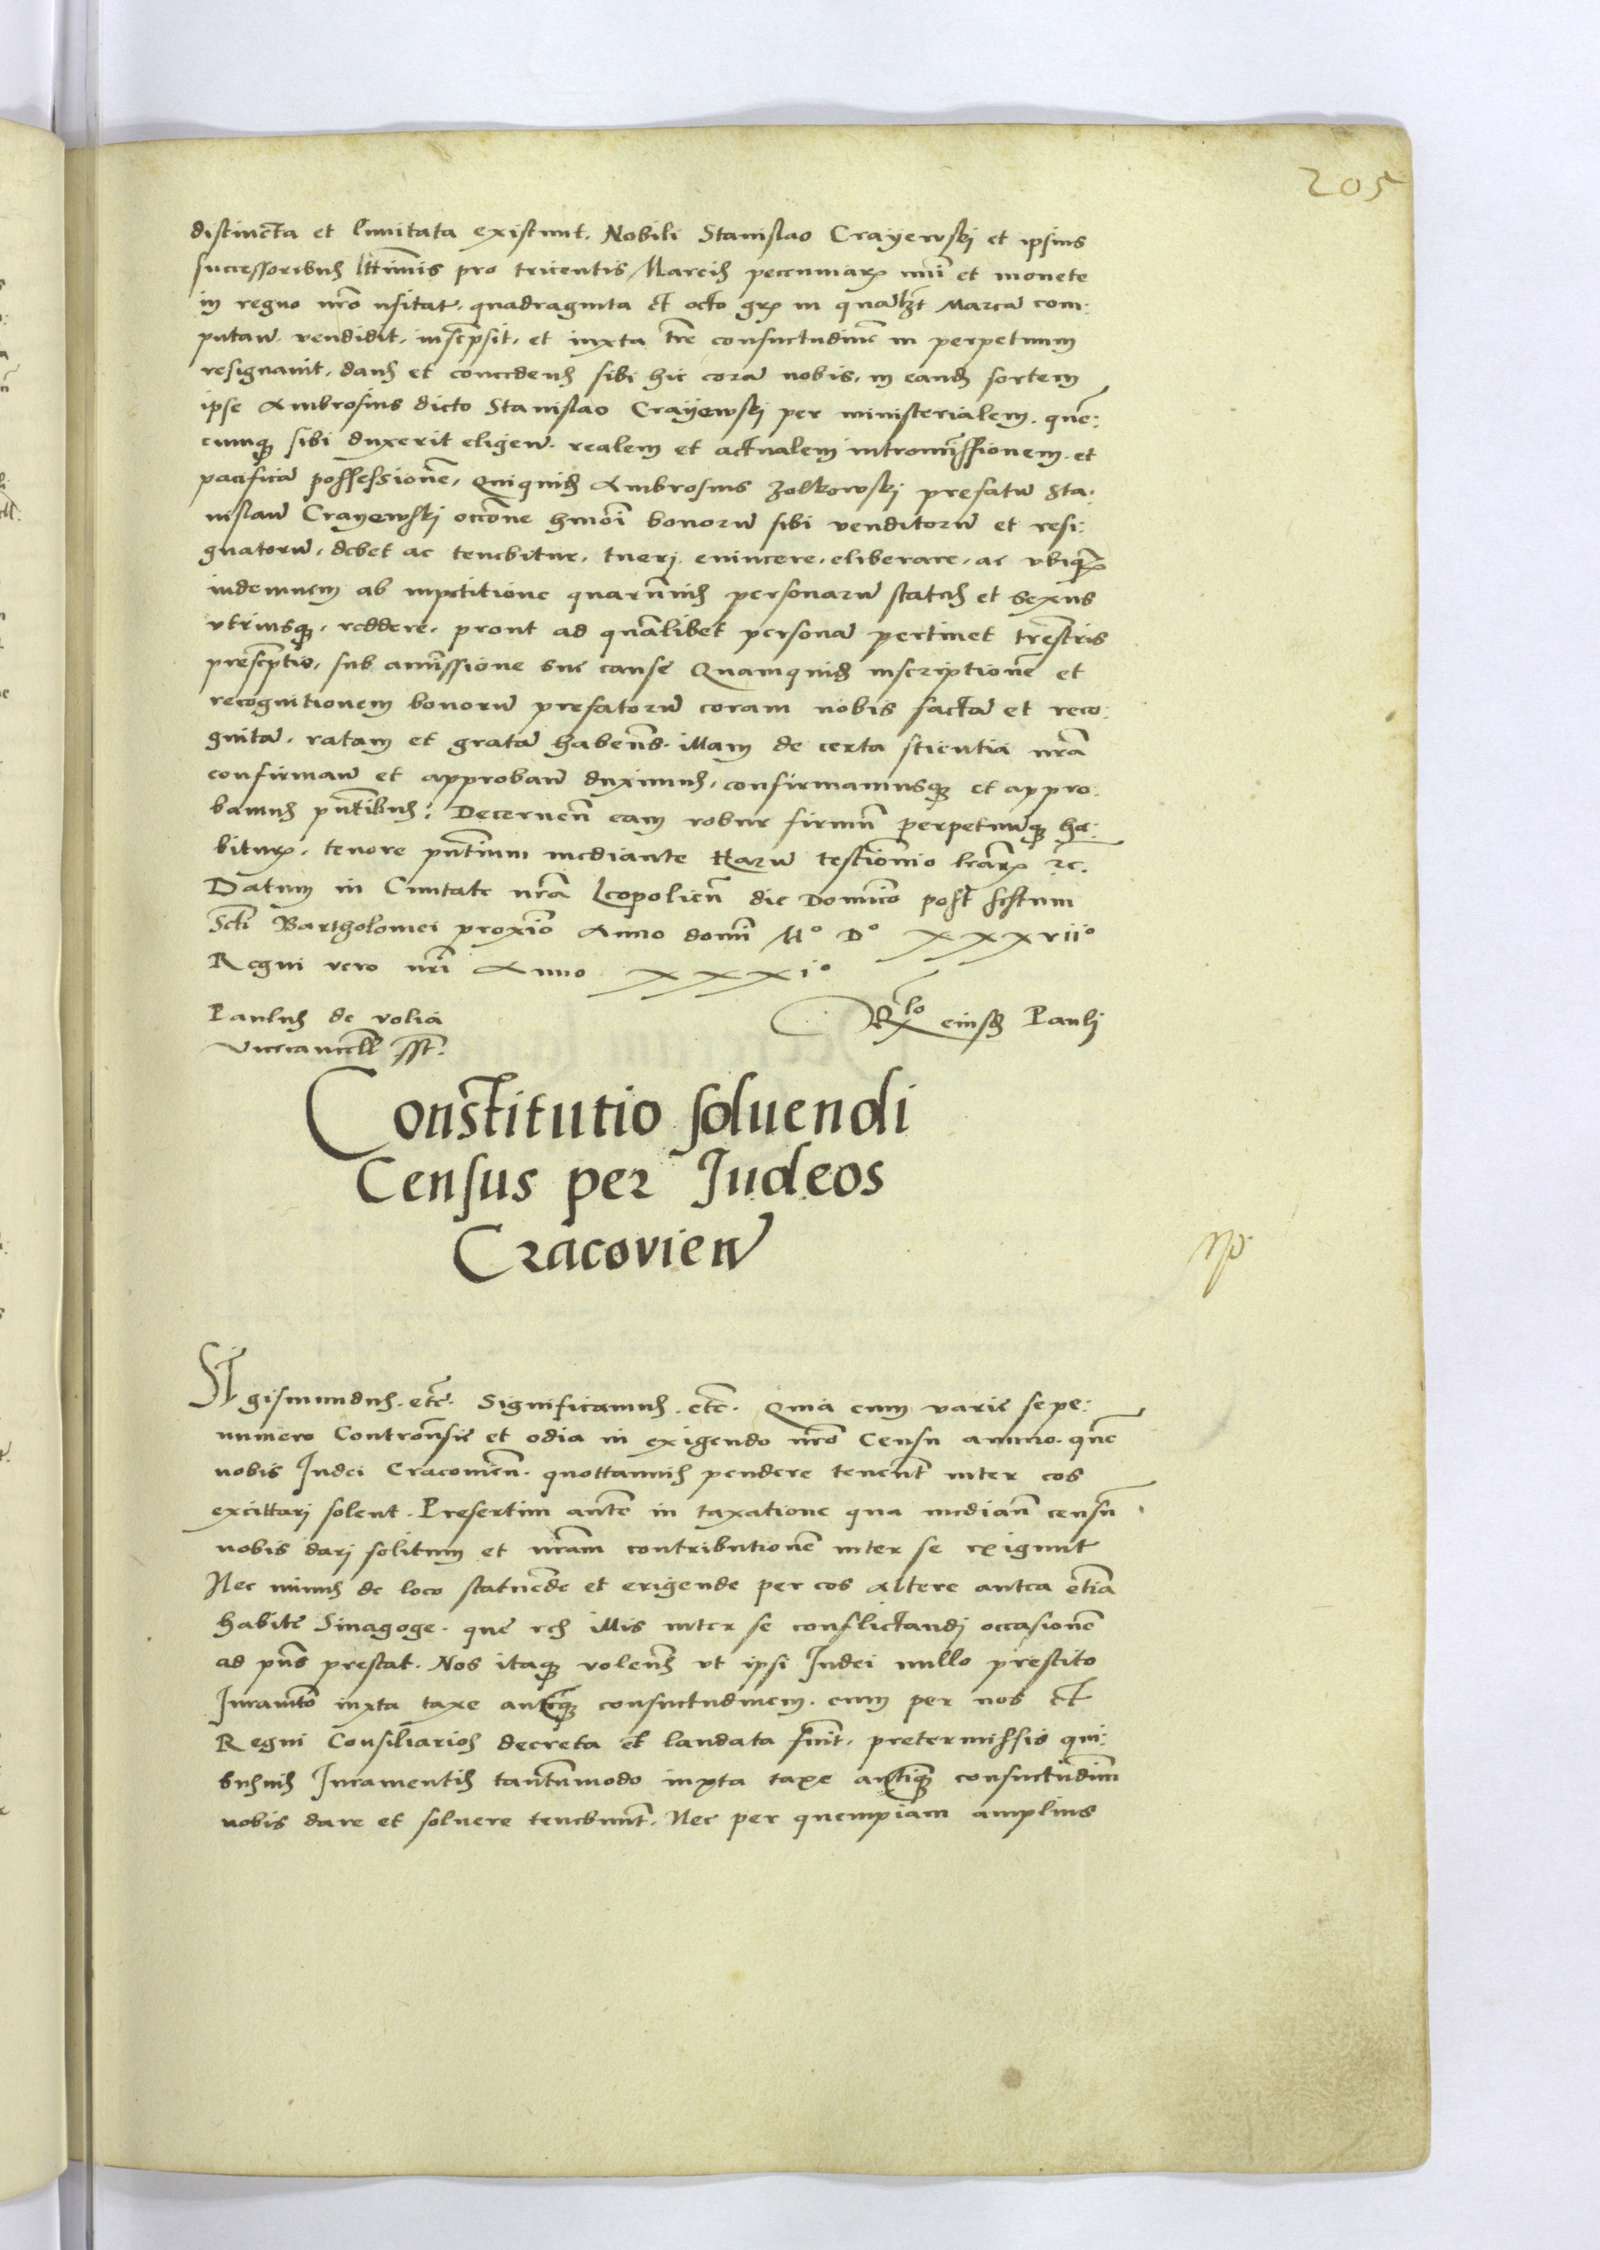 205
distincta et limitata existunt. Nobili Stanislao Crayewskj et ipsius
successoribus lttimis pro tricentis Marcis pecuniarꝝ nūi et monete
in regno nrō usitat. quadraginta et octo grꝝ in qualibet Marcā com:
putan̄. vendidit, inscrpsit, et iuxta trē consuetudinē in perpetuum
resignavit, dans et concedens sibi hic corā nobis, in eandem sortem
ipse Ambrosius dicto Stanislao Crayewskj per ministerialem, quē:
cumqꝫ sibi duxerit eligen̄. realem et actualem intromissionem et
pacificā possessionē, Quiquidem Ambrosius Zolkowskj prefatū Sta:
nislaū Crayewskj occōne hmōi bonorū sibi venditorū et resi:
gnatorū, debet ac tenebitur, tuerj evincere, eliberare, ac ubiqꝫ
indemnem ab impetitione quarumvis personarū status et sexus
utriusqꝫ, reddere, prout ad quālibet personā pertinet trēstris
prescrptio, sub amissione sue cause Quamquidem inscriptionē et
recognitionem bonorū prefatorū coram nobis factā et reco:
gnitā, ratam et gratā habentes illam de certa scientia nrā
confirman̄ et approban̄ duximus, confirmamusqꝫ et appro:
bamus pntibus: Decernen̄ eam robur firmū perpetuūqꝫ ha:
biturꝝ, tenore pntium mediante Harū testīonio lrārꝝ etc.
Datum in Civitate nrā Leopolien̄ die Dominico post festum
Scti Bartholomei proxīo Anno domī Mº Dº xxxvijº
Regni vero nrī Anno xxxiº
Paulus de volia
vicecancell sst.
Rlo eiusdem Paulj
Constitutio soluendi
Census per Iudeos
Cracovien̄
Sigismundus. etc. Significamus. etc. Quia cum varie sepe:
numero Controūsie et odia in exigendo nrō Censu annuo, quē
nobis Iudei Cracovien̄. quottannis pendere tenent inter eos
excittarj solent. Presertim autē in taxatione qua median̄ censū
nobis darj solitum et contributionē inter se exigunt
Nec minus de loco statuēde et erigende per eos altere antea etiā
habite Sinagoge, que res illis inter se conflictandj occasionē
ad pns prestat. Nos itaqꝫ volentes ut ipsi Iudei nullo prestito
Iuramto iuxta taxe antiqꝫ consuetudinem, cum per nos et
Regni Consiliarios decreta et laudata sunt, pretermissis qui:
busvis Iuramentis tantummodo iuxta taxe antiqꝫ consuetudinem
nobis dare et soluere tenebunt. Nec per quempiam amplius